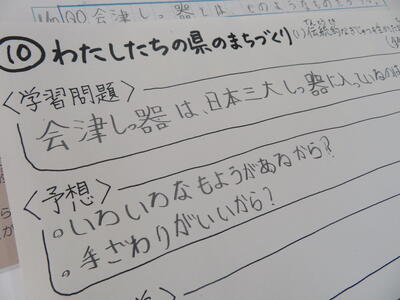 会津しっ器とは、どのようなものだろう。
⑩ わたしたちの県のまちづくり (1) 伝統的な
〈学習問題〉
会津しっ器は、日本三大しっ器に入っているのは
〈予想〉
。いろいろなもようがあるから?
。手ざわりがいいから?